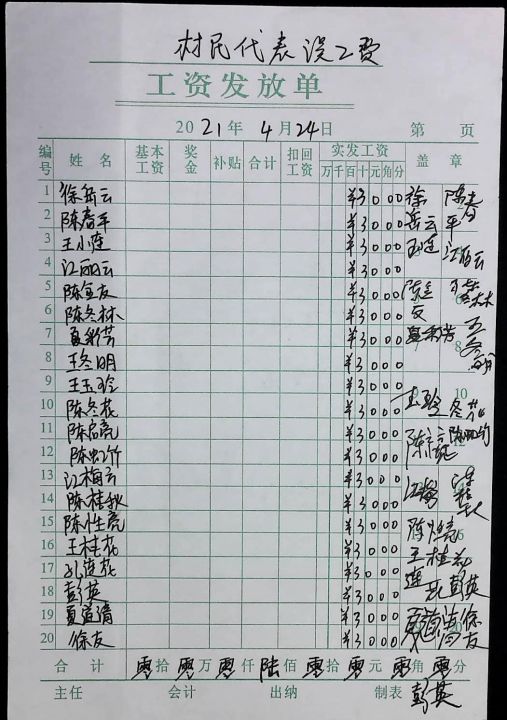 村民代表误工费
工资发放单
2021年 4月24日 第 页
编号 姓名 基本工资 奖金 补贴 合计 扣回工资 实发工资 盖章
万千百十元角分
1 徐岳云 ¥3000 徐岳云
2 陈春平 ¥3000 陈春平
3 王小连 ¥3000
4 江丽云 ¥3000 江丽云
5 陈金友 ¥3000
6 陈冬林 ¥3000
7 夏彩芳 ¥3000
8 王冬明 ¥3000
9 王玉玲 ¥3000
10 陈冬花 ¥3000 冬花
11 陈启亮 ¥3000
12 陈虹竹 ¥3000
13 江梅云 ¥3000
14 陈桂秋 ¥3000
15 陈性亮 ¥3000
16 王桂花 ¥3000 王桂花
17 孔连花 ¥3000
18 彭英 ¥3000 彭英
19 夏道清 ¥3000 夏道清
20 徐友 ¥3000 徐友
合计 零拾零万零仟陆佰零拾零元零角零分
主任 会计 出纳 制表 彭英